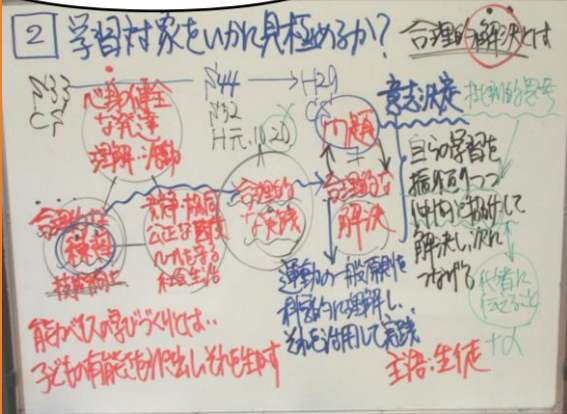 2 学習対象をいかに見極めるか?
合理的解決とは
S44
H29
S52
H元.10.20
心身の健全
な発達
理解・活動
合理的な
実践
責任・協同
公正な態度
ルールを守る
社会生活
合理的
な実践
問題
合理的な
解決
意志決定
批判的思考
自らの学習を
振り返りつつ
仲間と協力して
解決し、次に
つなげる
他者に
伝えること
+α
運動の一般原則を
科学的に理解し、
それを活用して実践
能力ベースの学びづくりとは‥
子どもの有能さを引き出し、それを生かす
主語:生徒